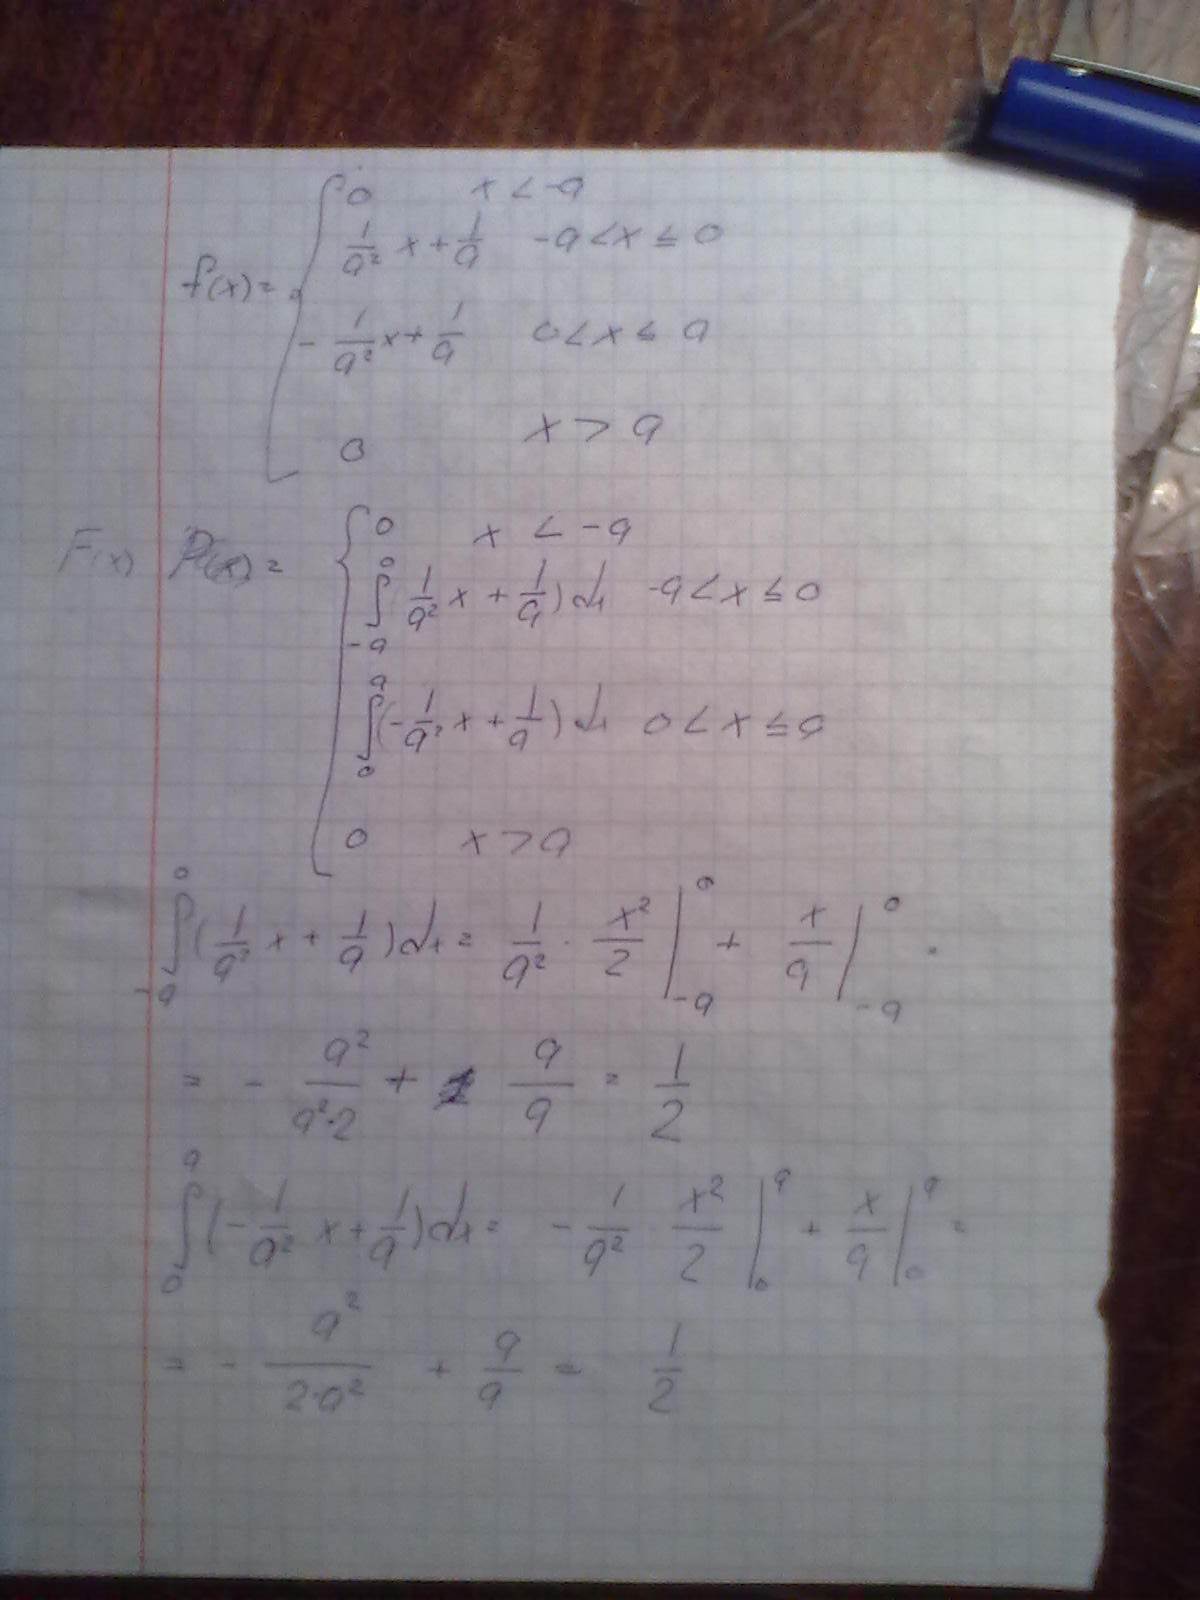 f(x) = { 0   x < -a
1/a² x + 1/a   -a < x ≤ 0
- 1/a² x + 1/a   0 < x ≤ a
0   x > a
F(x) = { 0   x < -a
∫_{-a}^{0} (1/a² x + 1/a) dx   -a < x ≤ 0
∫_{0}^{a} (- 1/a² x + 1/a) dx   0 < x ≤ a
0   x > a
∫_{-a}^{0} (1/a² x + 1/a) dx = 1/a² · x²/2 |_{-a}^{0} + x/a |_{-a}^{0} =
= - a²/(a²·2) + a/a = 1/2
∫_{0}^{a} (- 1/a² x + 1/a) dx = - 1/a² · x²/2 |_{0}^{a} + x/a |_{0}^{a} =
= - a²/(2·a²) + a/a = 1/2